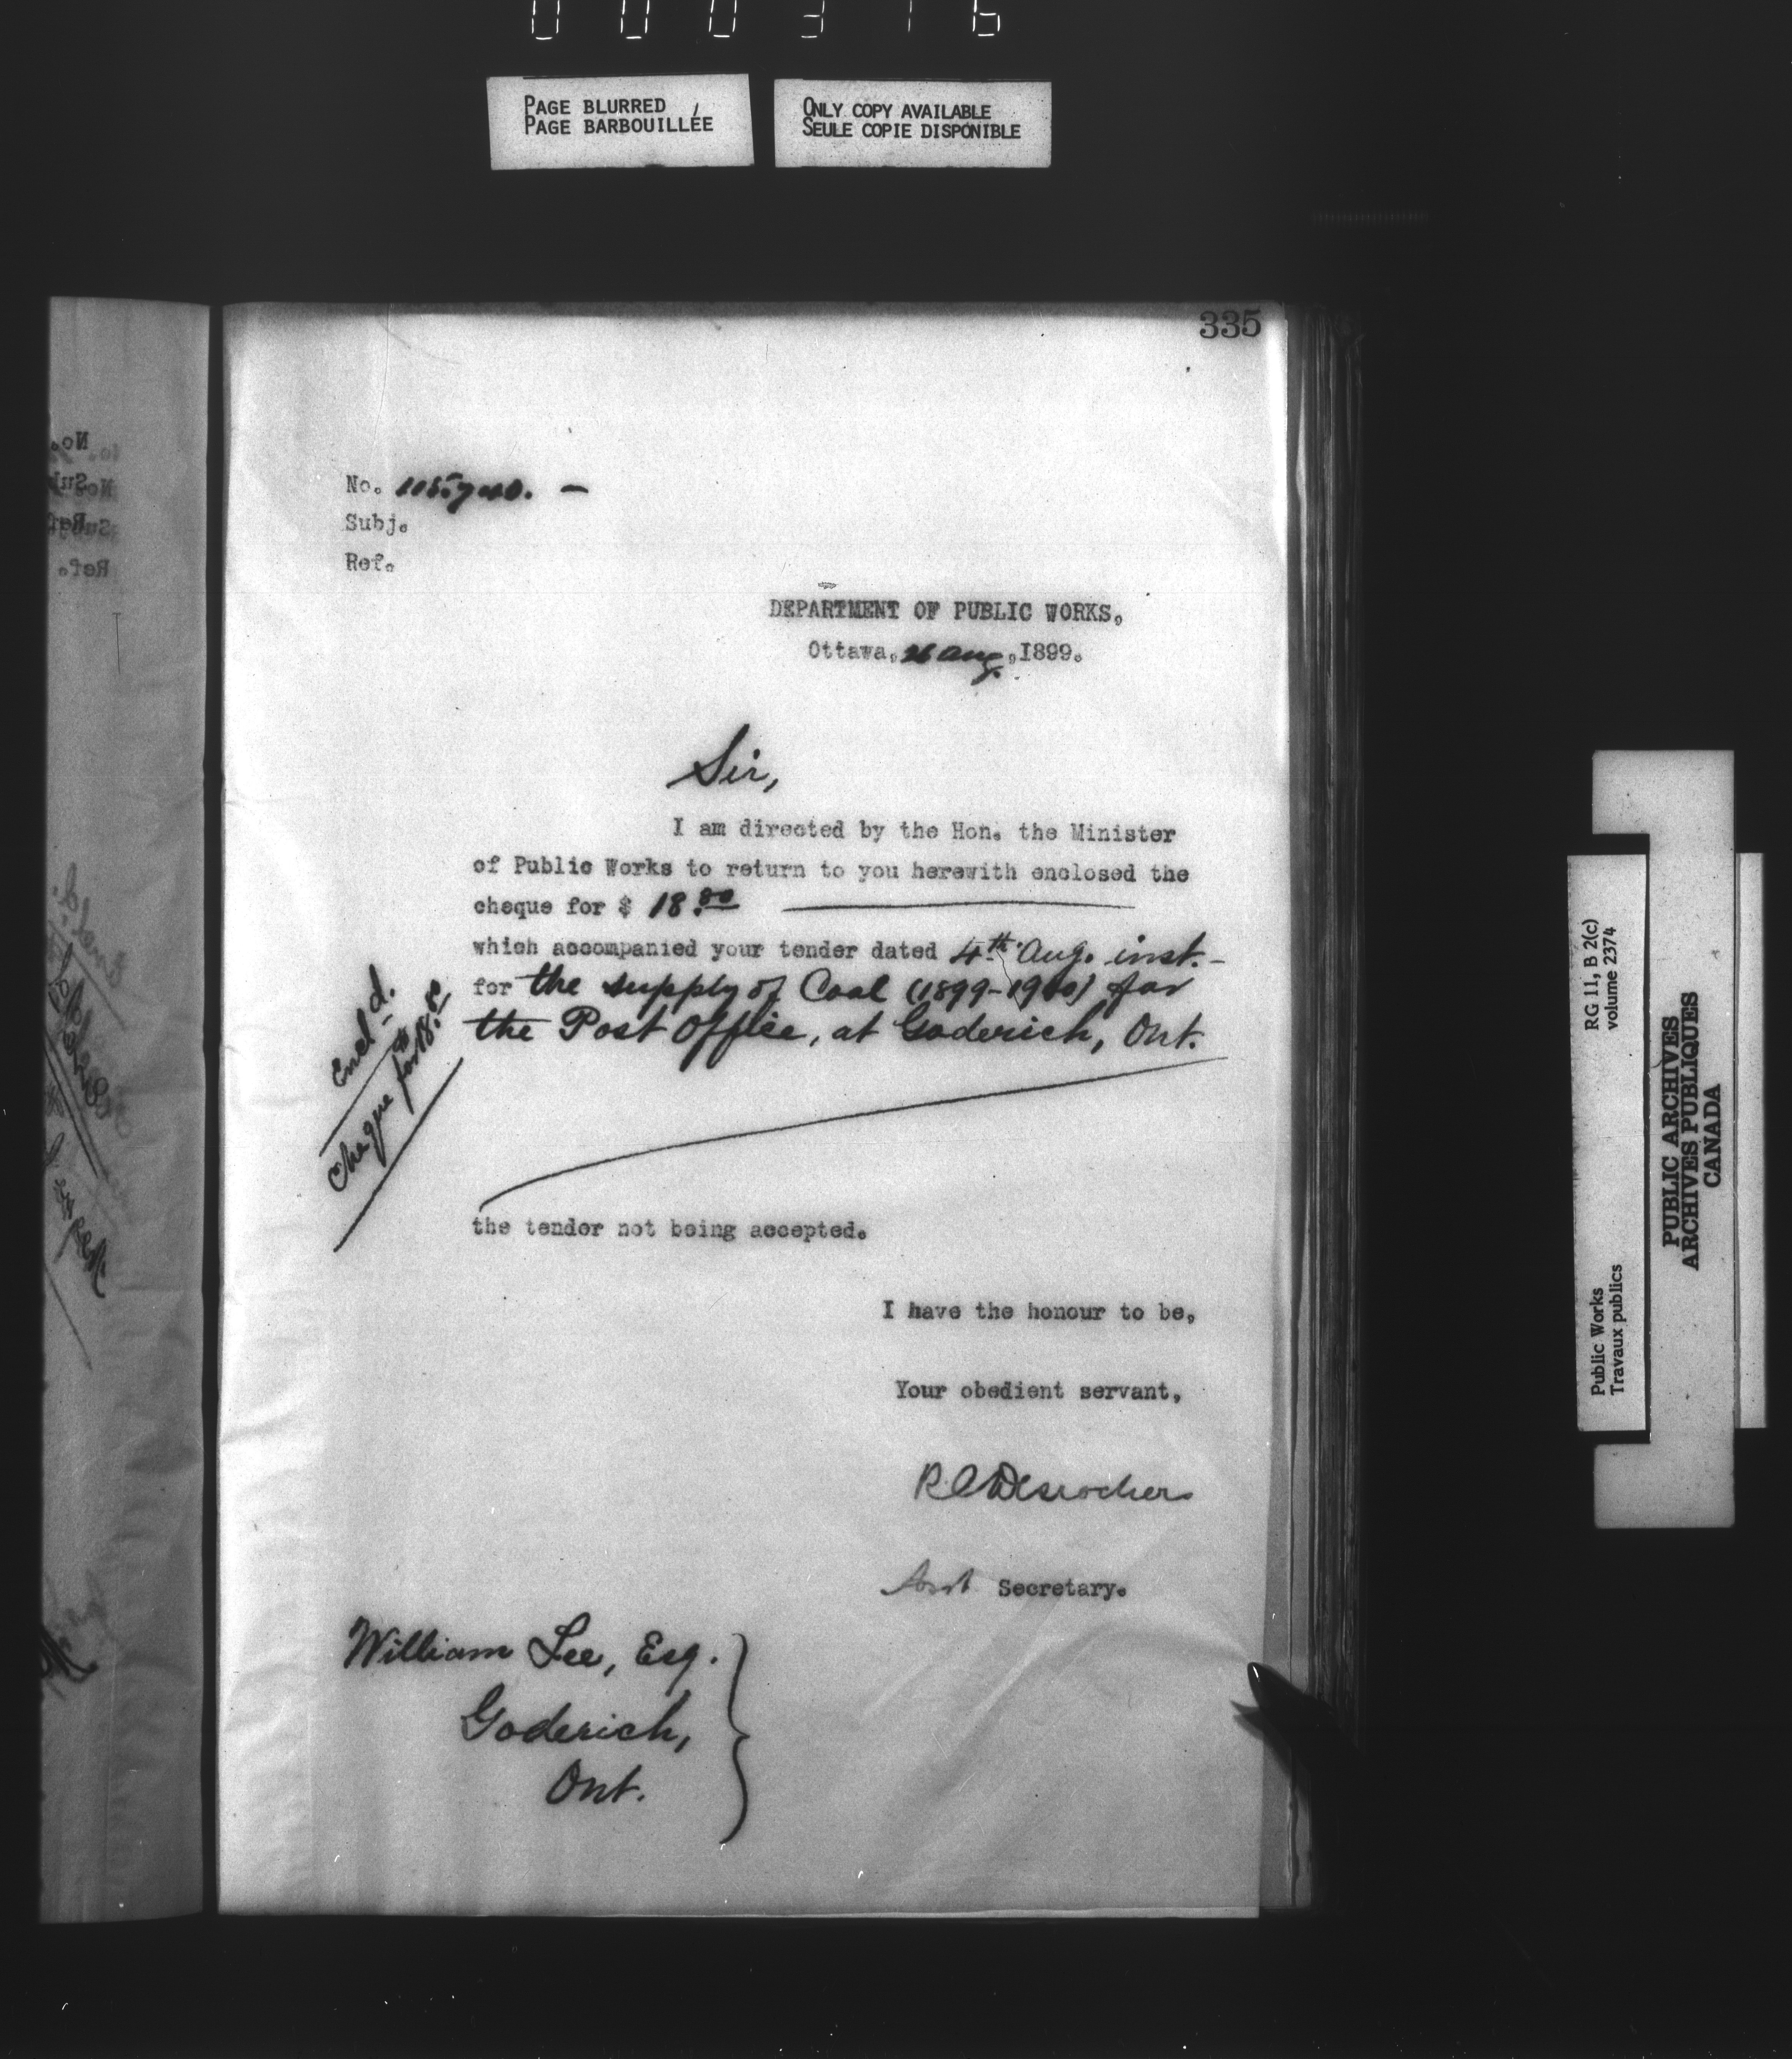 000316
PAGE BLURRED
PAGE BARBOUILLÉE
ONLY COPY AVAILABLE
SEULE COPIE DISPONIBLE
335
No.
Subj.
Ref.
DEPARTMENT OF PUBLIC WORKS.
Ottawa, 26 Aug. , 1899.
Sir,
I am directed by the Hon. the Minister
of Public Works to return to you herewith enclosed the
cheque for $ 18.80
which accompanied your tender dated 4th Aug. inst. -
for the supply of Coal (1899-1900) for
the Post Office, at Goderich, Ont.
Encl d.
Cheque for $18.80
the tender not being accepted.
I have the honour to be,
Your obedient servant,
R C Desrochers
Asst Secretary.
William Lee, Esq.
Goderich,
Ont.
RG 11, B 2(c)
volume 2374
Public Works
Travaux publics
PUBLIC ARCHIVES
ARCHIVES PUBLIQUES
CANADA